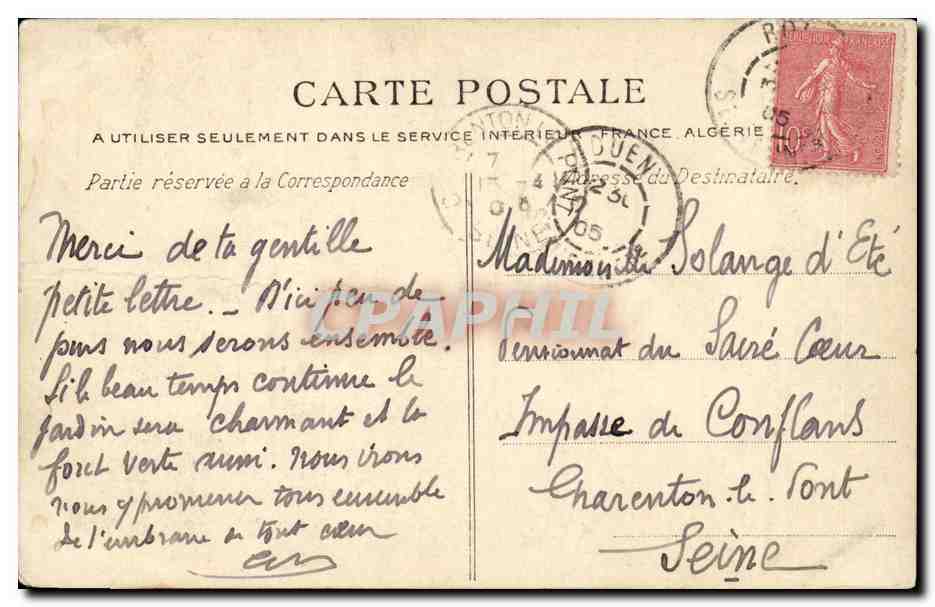 CARTE POSTALE
A UTILISER SEULEMENT DANS LE SERVICE INTÉRIEUR, FRANCE, ALGÉRIE
Partie réservée à la Correspondance
Adresse du Destinataire.
REPUBLIQUE FRANÇAISE
10
OUEN
05
CPAPHIL
Merci de ta gentille
petite lettre. _ D'ici peu de
jours nous serons ensemble.
Si le beau temps continue le
jardin sera charmant et la
foret verte aussi. Nous irons
nous y promener tous ensemble
Je t'embrasse de tout cœur
Mademoiselle Solange d'Eté
Pensionnat du Sacré Cœur
Impasse de Conflans
Charenton-le-Pont
Seine